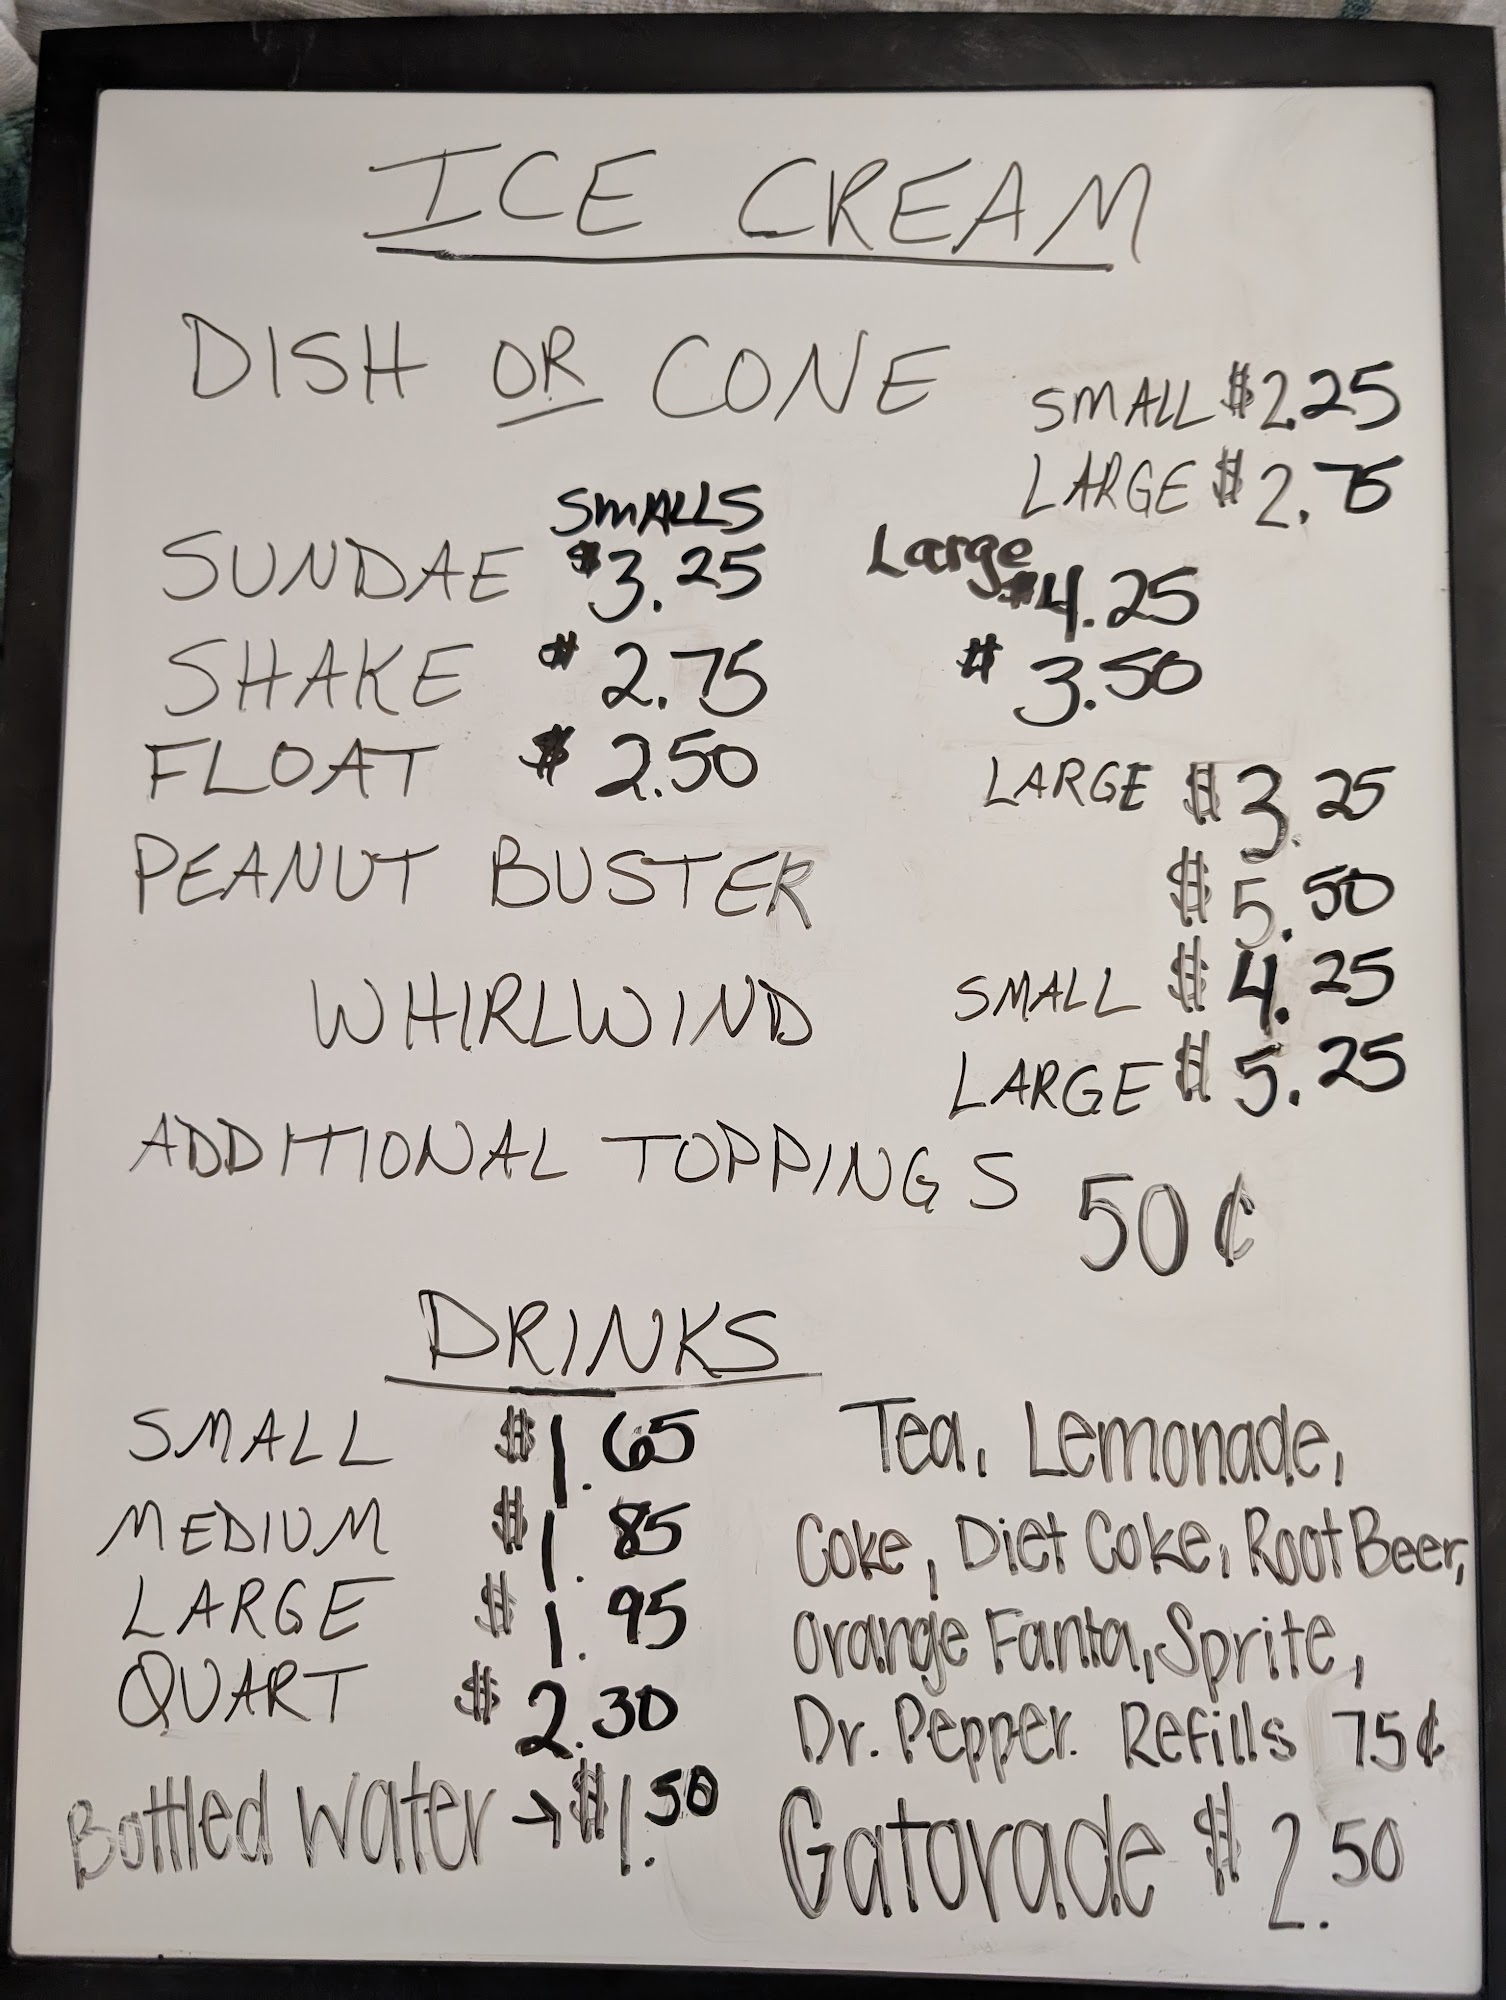 ICE CREAM
DISH OR CONE
SMALL $2.25
LARGE $2.75
SMALLS
Large
SUNDAE $3.25 $4.25
SHAKE $2.75 $3.50
FLOAT $2.50 LARGE $3.25
PEANUT BUSTER $5.50
WHIRLWIND SMALL $4.25
LARGE $5.25
ADDITIONAL TOPPINGS 50¢
DRINKS
SMALL $1.65
MEDIUM $1.85
LARGE $1.95
QUART $2.30
Bottled Water → $1.50
Tea, Lemonade,
Coke, Diet Coke, Root Beer,
Orange Fanta, Sprite,
Dr. Pepper. Refills 75¢
Gatorade $2.50